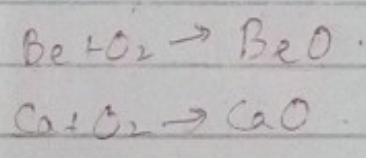 Be + O₂ → BeO.
Ca + O₂ → CaO.